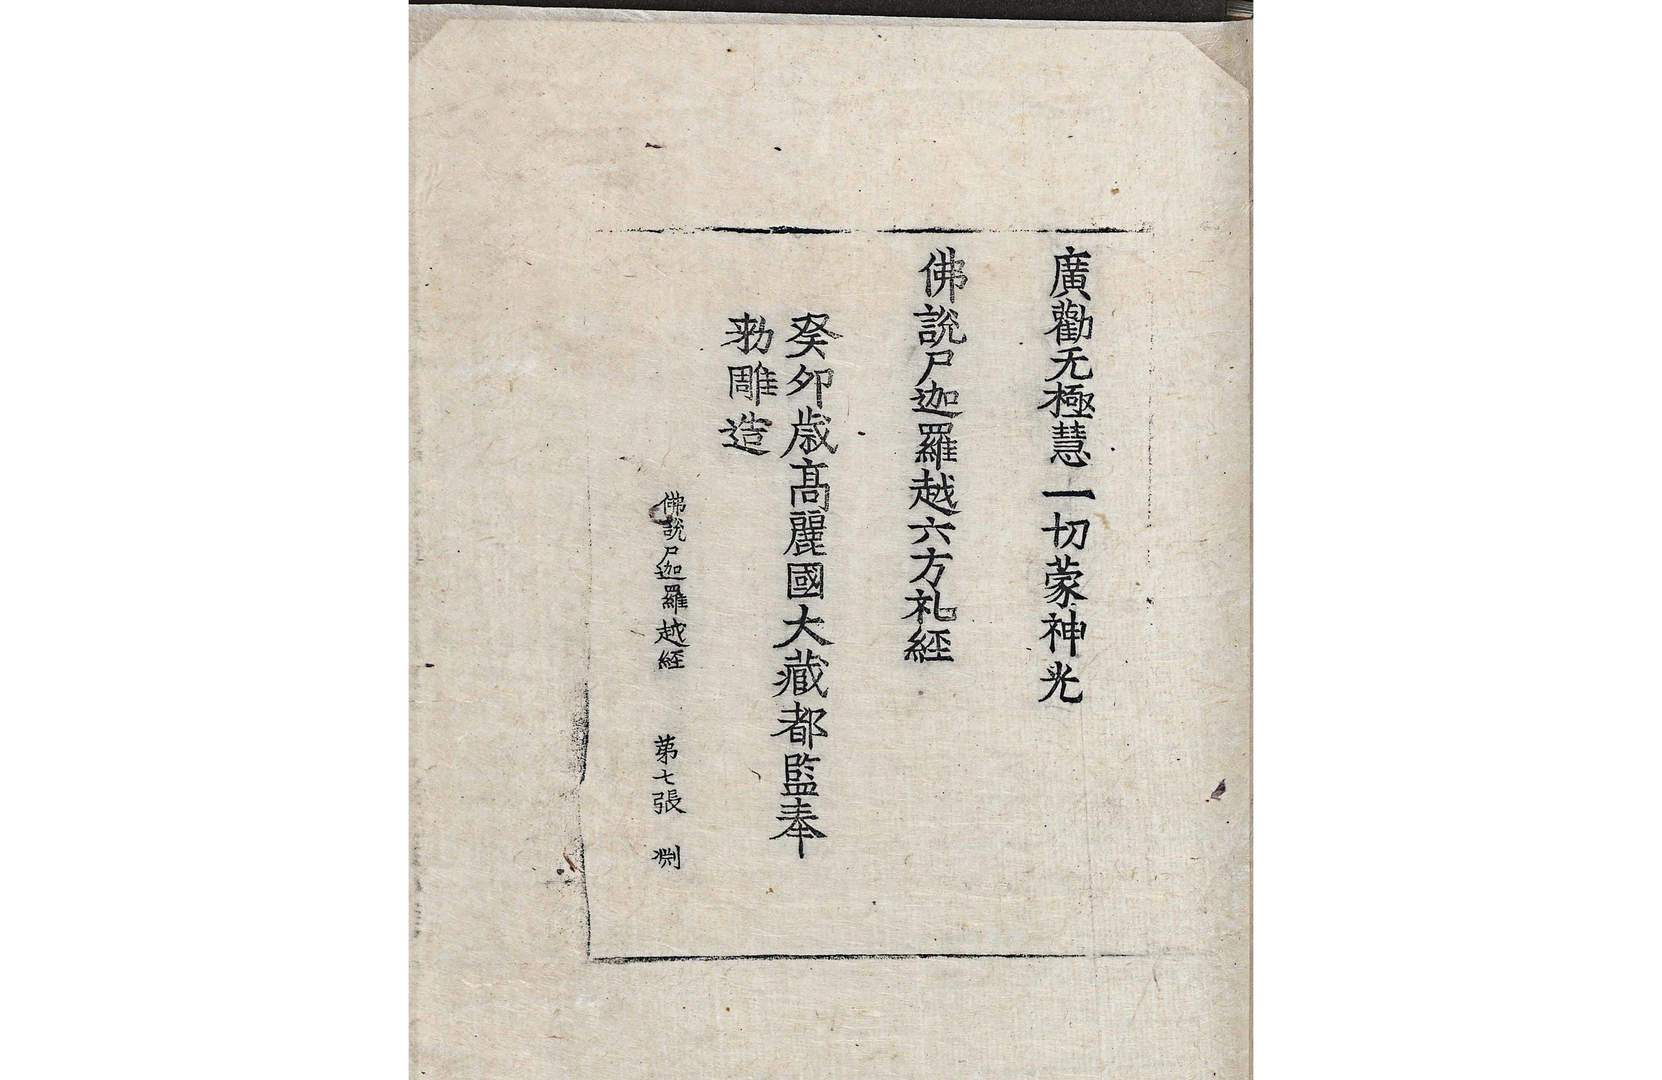 廣勸无極慧一切蒙神光
佛說尸迦羅越六方礼經
癸卯歳高麗國大藏都監奉
勑雕造
佛說尸迦羅越經 苐七張 淵